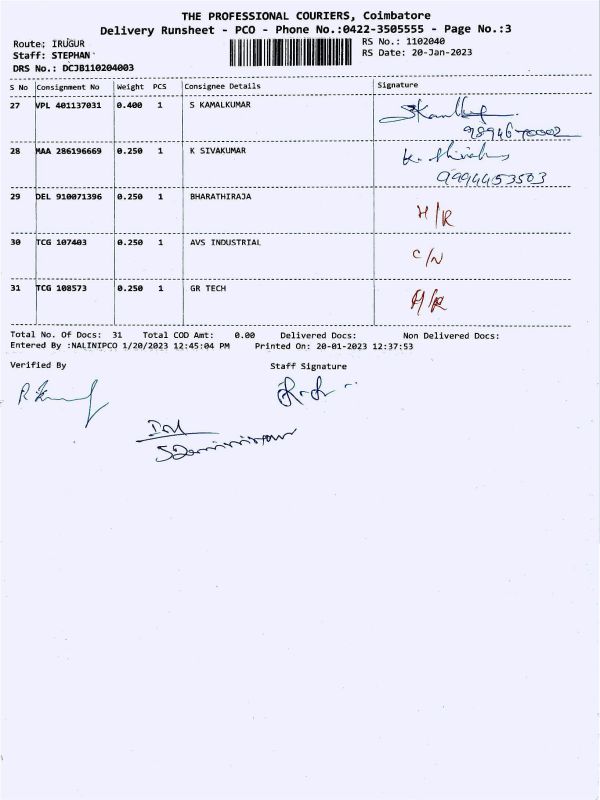 THE PROFESSIONAL COURIERS, Coimbatore
Delivery Runsheet - PCO - Phone No.:0422-3505555 - Page No.:3
Route: IRUGUR RS No.: 1102040
Staff: STEPHAN RS Date: 20-Jan-2023
DRS No.: DCJB110204003
S No Consignment No Weight PCS Consignee Details Signature
27 VPL 401137031 0.400 1 S KAMALKUMAR
28 MAA 286196669 0.250 1 K SIVAKUMAR
9994453503
29 DEL 910071396 0.250 1 BHARATHIRAJA H/R
30 TCG 107403 0.250 1 AVS INDUSTRIAL C/N
31 TCG 108573 0.250 1 GR TECH H/R
Total No. Of Docs: 31 Total COD Amt: 0.00 Delivered Docs: Non Delivered Docs:
Entered By :NALINIPCO 1/20/2023 12:45:04 PM Printed On: 20-01-2023 12:37:53
Verified By Staff Signature